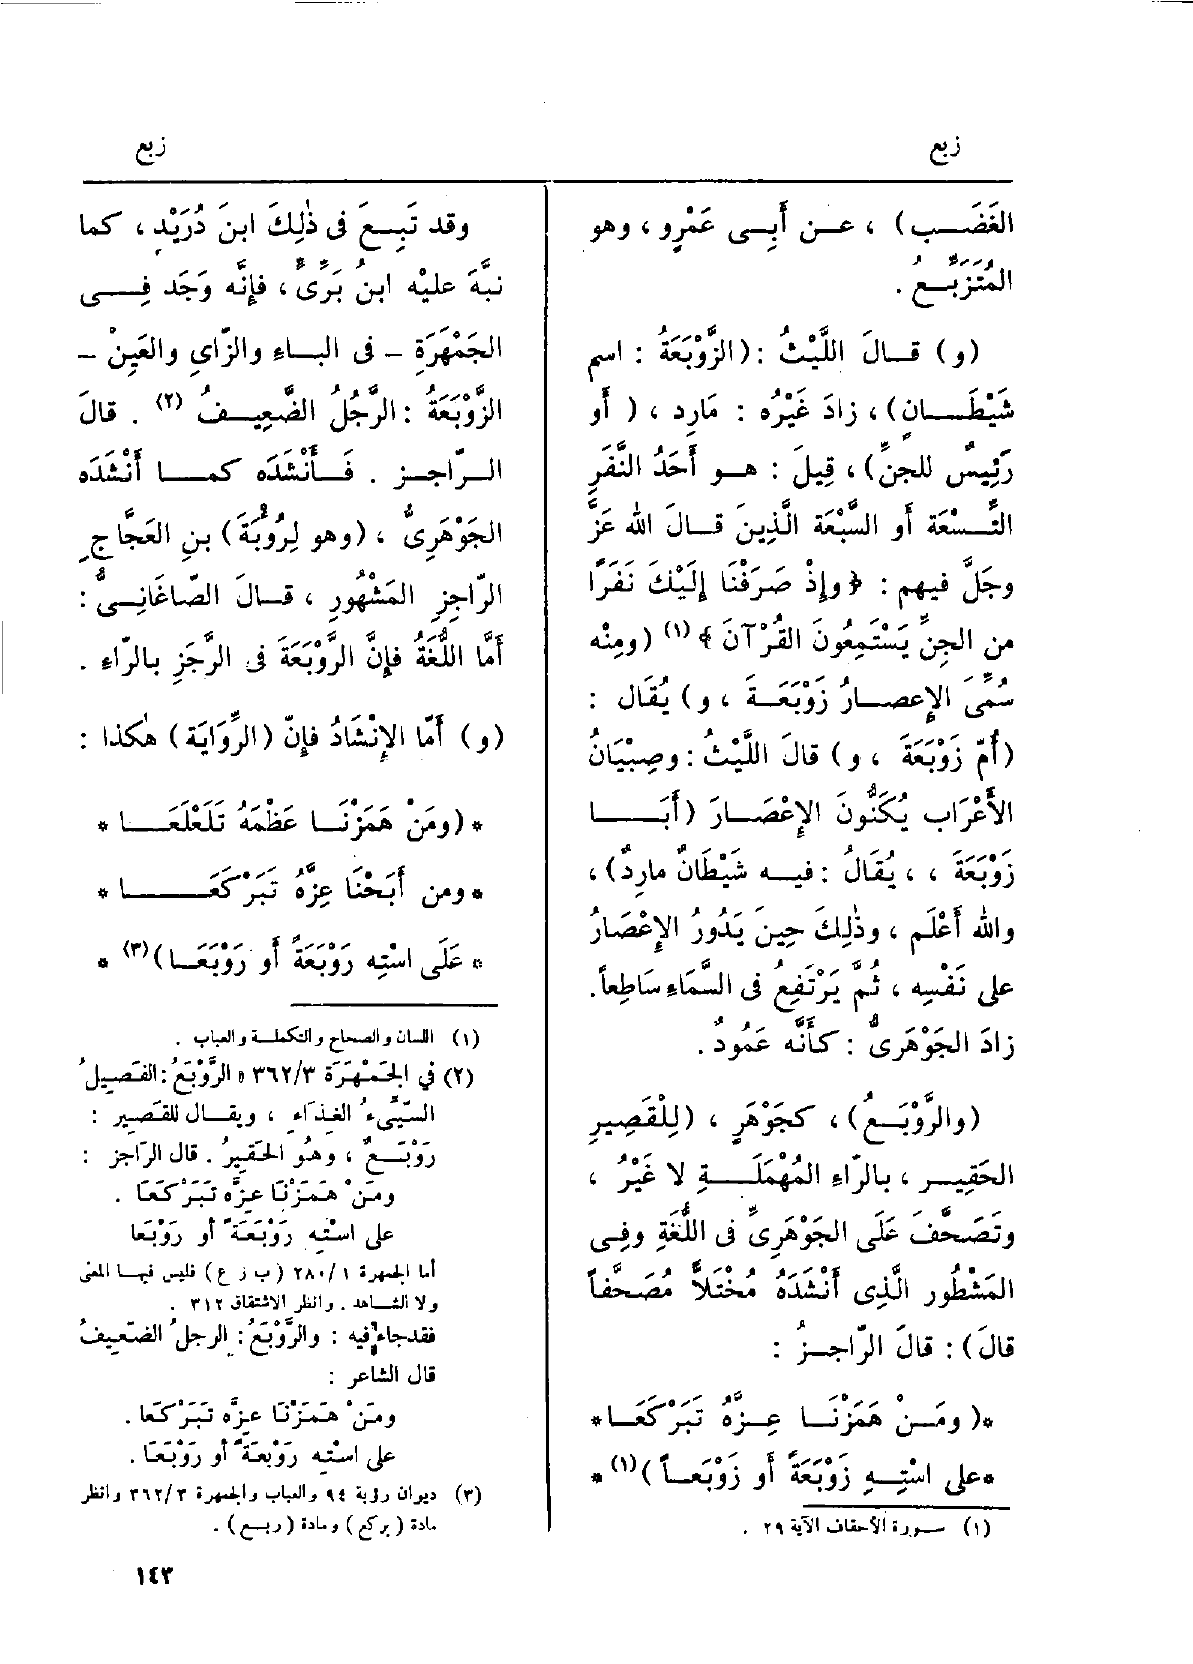 زبع
زبع
الغَضَـــب) ، عـن أَبِـى عَمْرٍو ، وهو
المُتَزَبِّـعُ .
(و) قـالَ اللَّيْثُ : (الزَّوْبَعَةُ : اسم
شَيْطَـــان) ، زادَ غَيْرُه : مَارِد ، ( أَو
رَئِيسٌ للجِنِّ) ، قِيلَ : هـو أَحَدُ النَّفَرِ
التِّــسْعَة أَو السَّبْعَة الَّذِينَ قـالَ الله عَزَّ
وجَلَّ فيهم : ﴿ وإِذْ صَرَفْنَا إِلَيْكَ نَفَرًا
من الجِنِّ يَسْتَمِعُونَ القُرْآنَ ﴾ (١) (ومِنْه
سُمِّىَ الإِعصـارُ زَوْبَعَـةَ ، و) يُقَال :
(أُمّ زَوْبَعَةَ ، و) قالَ اللَّيْثُ : وصِبْيَانُ
الأَعْرَاب يُكَنُّونَ الإِعْصَـارَ (أَبَـــا
زَوْبَعَةَ ، ، يُقَالُ : فيـه شَيْطَانٌ مارِدٌ) ،
والله أَعْلَم ، وذٰلِكَ حِينَ يَدُورُ الإِعْصَارُ
على نَفْسِه ، ثُمَّ يَرْتَفِعُ فى السَّمَاءِ سَاطِعاً.
زادَ الجَوْهَرِىُّ : كأَنَّه عَمُودٌ .
(والرَّوْبَـعُ) ، كجَوْهَرٍ ، (لِلْقَصِيرِ
الحَقِيـر ، بالرّاءِ المُهْمَلَــةِ لا غَيْرُ ،
وتَصَحَّفَ عَلَى الجَوْهَرِىِّ فى اللُّغَةِ وفِـى
المَشْطُورِ الَّذِى أَنْشَدَهُ مُخْتَلاًّ مُصَحَّفاً
قالَ) : قالَ الرّاجِــزُ :
*( ومَــنْ هَمَزْنَـا عِـزَّهُ تَبَرْكَعَـا*
*على اسْتِـهِ زَوْبَعَةً أَو زَوْبَعَـاً )(١) *
(١) سـورة الأحقاف الآية ٢٩ .
وقد تَبِـعَ فى ذٰلِكَ ابنَ دُرَيْدٍ ، كما
نبَّهَ عليْه ابنُ بَرِّىٍّ ، فإِنَّه وَجَد فِــى
الجَمْهَرَةِ – فى البـاءِ والزّاىِ والعَيْنِ –
الزَّوْبَعَةُ : الرَّجُلُ الضَّعِيـفُ (٢) . قالَ
الـرّاجـز . فَـأَنْشَدَه كمـا أَنْشَدَه
الجَوْهَرِىُّ ، (وهو لِرُؤْبَةَ) بنِ العَجَّاجِ
الرّاجِزِ المَشْهُورِ ، قـالَ الصّاغَانِـىُّ :
أَمَّا اللُّغَةُ فإِنَّ الرَّوْبَعَةَ فى الرَّجَزِ بالرّاءِ .
(و) أَمّا الإِنْشَادُ فإِنّ (الرِّوَايَة) هٰكذا :
*(ومَنْ هَمَزْنَـا عَظْمَهُ تَلَعْلَعَـــا *
*ومن أَبَحْنَا عِزَّهُ تَبَرْكَعَـــــا *
* عَلَى اسْتِه رَوْبَعَةً أَو رَوْبَعَـا)(٣) *
(١) اللسان والصحاح والتكملـة والعباب .
(٢) في الجَمْهَرَة ٣٦٢/٣ « الرَّوْبَعُ : القَصِيلُ
السَّيِّىءُ الغِذَاءِ ، ويقـال للقَصِير :
رَوْبَـعٌ ، وهُو الحَقِيرُ . قال الرّاجز :
ومَنْ هَمَزْنَا عِزَّه تَبَرْكَعَا .
على اسْتِه رَوْبَعَةً أو رَوْبَعا
أما الجمهرة ٢٨٠/١ (ب ز ع) فليس فيهـا المعنى
ولا الشـاهد . وانظر الاشتقاق ٣١٢ .
فقدجاءفيه : والرَّوْبَعُ : الرجلُ الضَّعِيفُ
قال الشاعر :
ومَنْ هَمَزْنَا عِزَّه تَبَرْكَعا .
على اسْتِه رَوْبعةً أو رَوْبَعَا .
(٣) ديوان رؤبة ٩٤ والعباب والجمهرة ٣٦٢/٣ وانظر
مادة (بركع) ومادة (ربـع) .
١٤٣